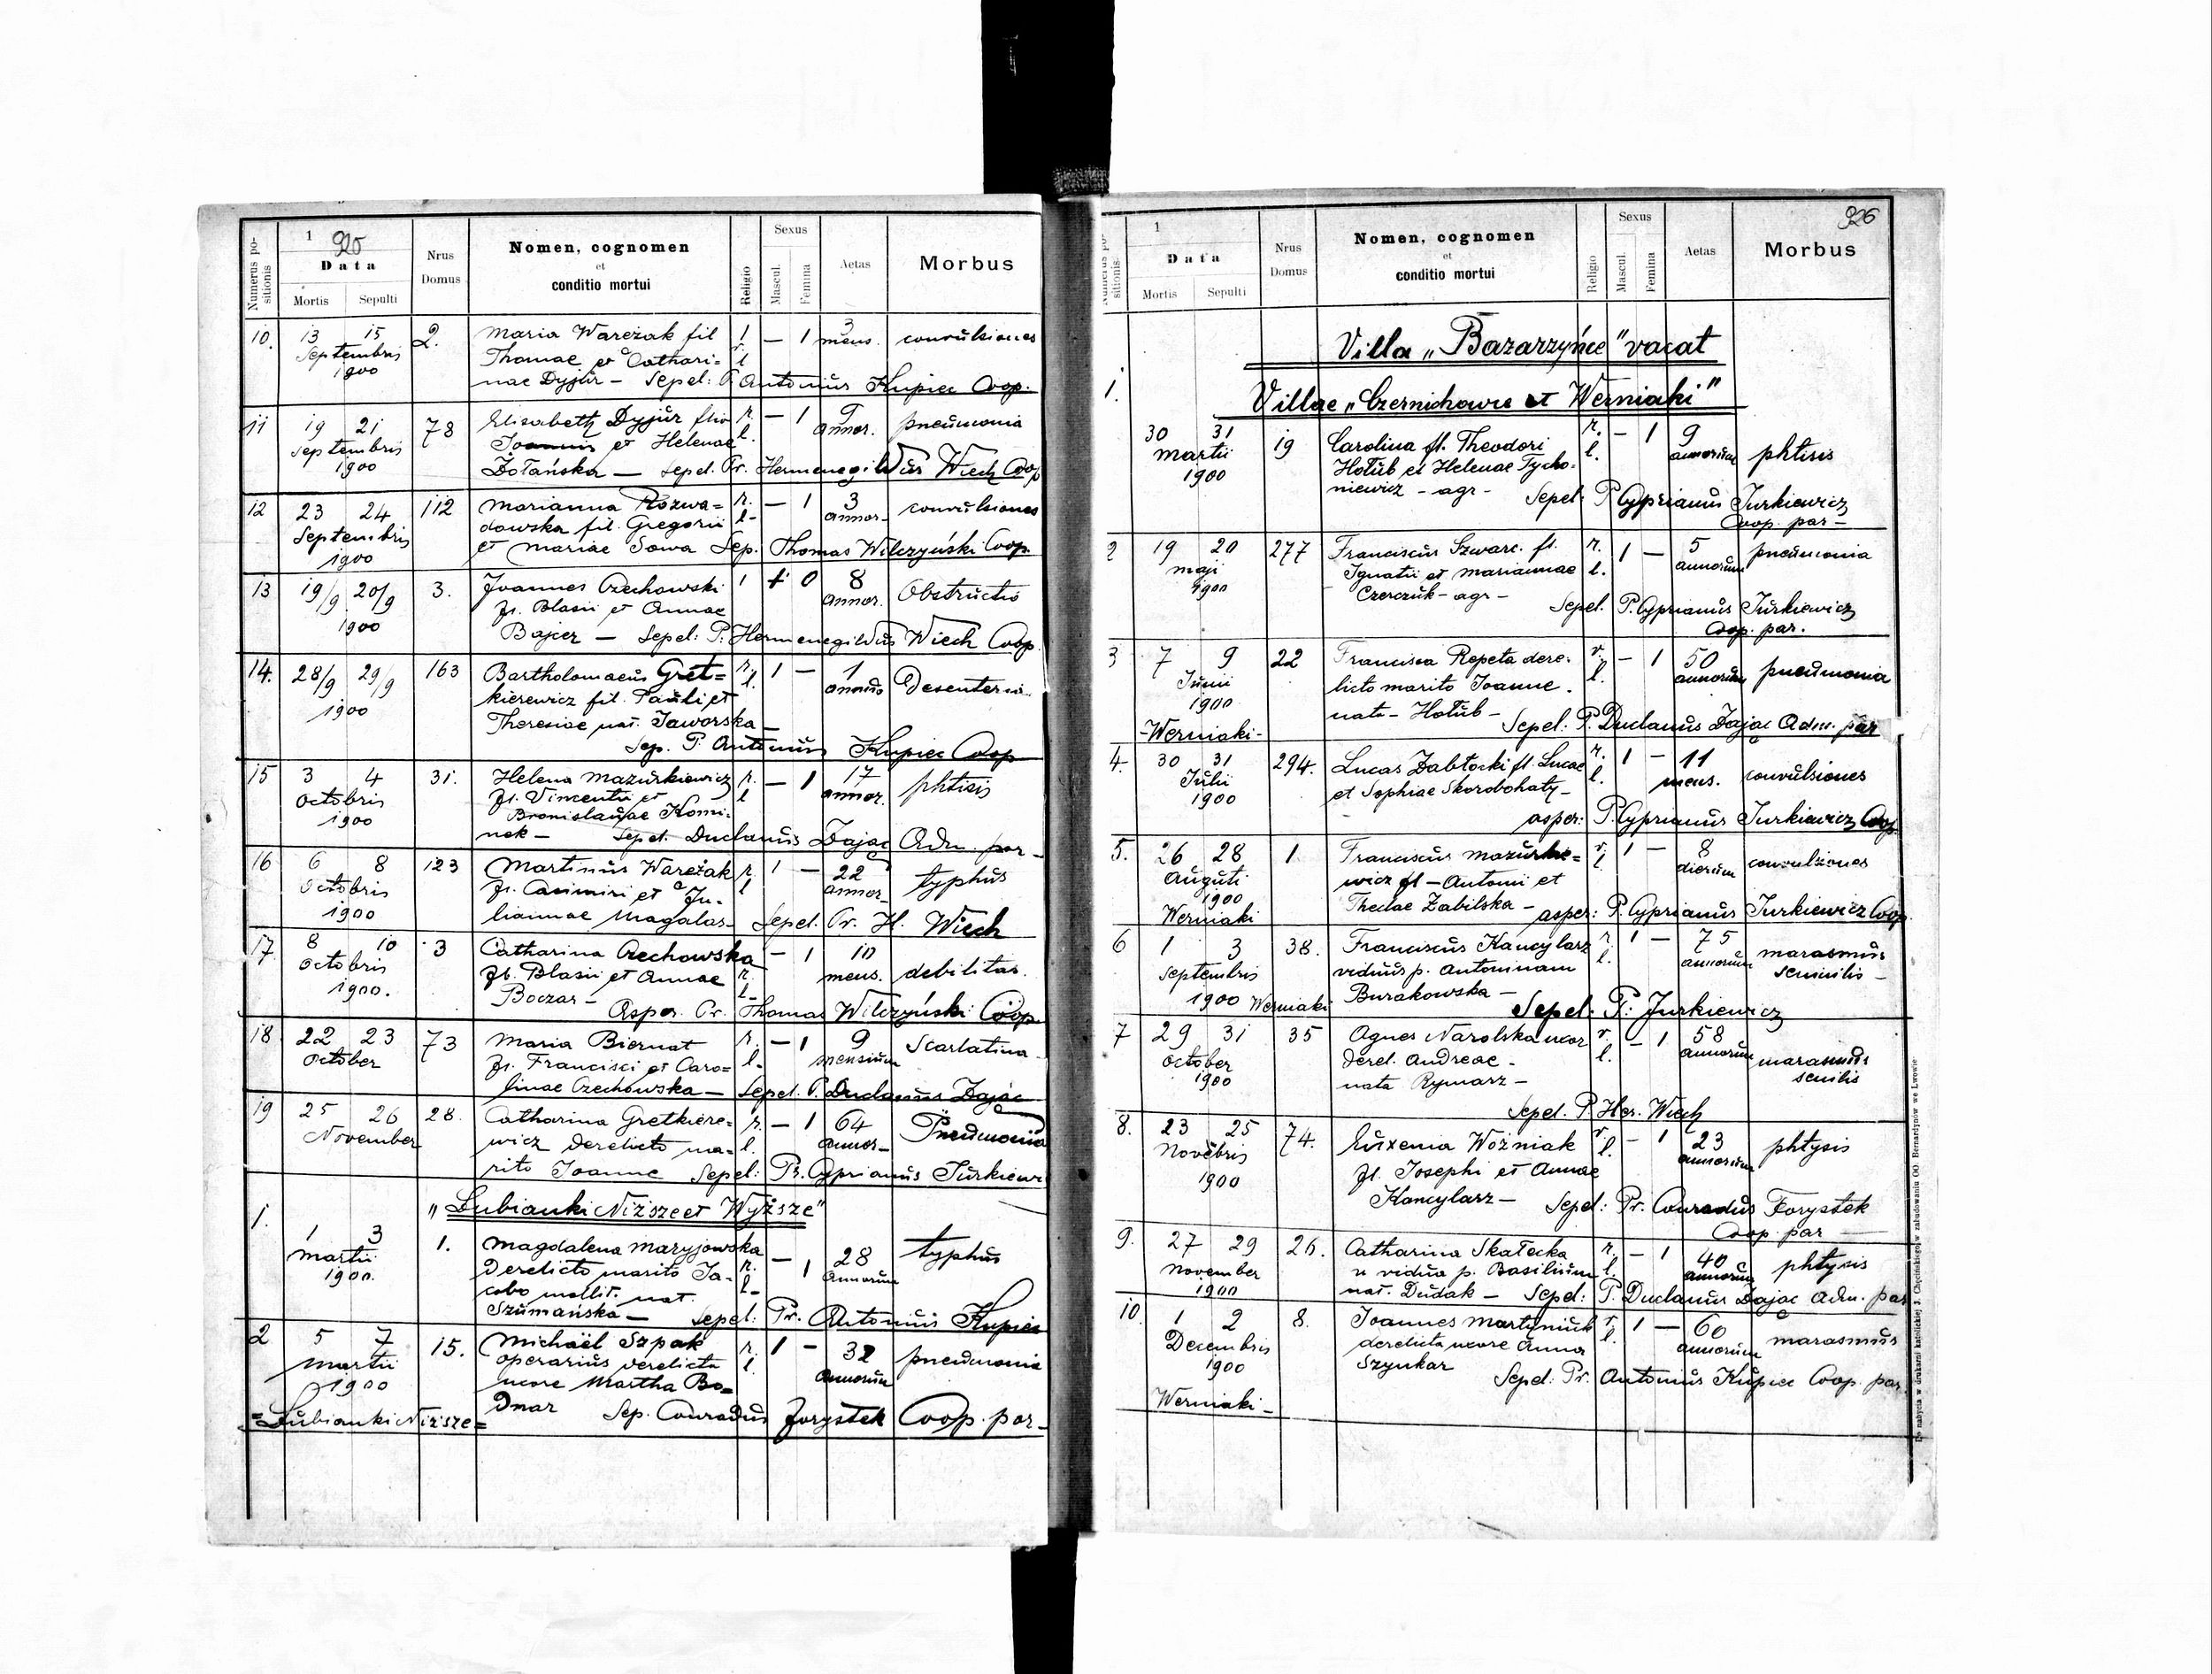 925
Numerus positionis
1
Data
Mortis Sepulti
Nrus Domus
Nomen, cognomen
et
conditio mortui
Religio
Sexus
Mascul. Femina
Aetas
Morbus
10. 13 15 2. Maria Wareżak fil r. — 1 3 convulsiones
Septembris Thomae et Cathari= l mens.
1900 nae Dyjür — Sepel: P. Antonius Kupiec Coop.
11 19 21 78 Elisabeth Dyjür filia r. — 1 9 pneumonia
Septembris Joannis et Helenae l. annor.
1900 Żołańska — Sepel. Pr. Hermenegildus Wiech Coop
12 23 24 112 Marianna Rozwa= r. — 1 3 convulsiones
Septembris dowska fil. Gregorii l- annor-
1900 et Mariae Sowa Sep. Thomas Wilczyński Coop.
13 19/9 20/9 3. Joannes Czechowski 1 0 8 Obstructio
1900 fl. Blasii et Annae annor.
Bajcer — Sepel: P. Hermenegildus Wiech Coop
14. 28/9 29/9 163 Bartholomaeus Gret= r. 1 — 1 Desenteria
1900 kierewicz fil. Pauli et l.
Theresiae nat. Jaworska —
Sep. P. Antonius Kupiec Coop
15 3 4 31. Helena Mazurkiewicz r. — 1 17 phtisis
Octobris fl. Vincentii et l annor.
1900 Bronislavae Komi=
nek — Sepel. Duclanus Zając Adm. par-
16 6 8 123 Martinus Wareżak r. 1 — 22 typhus
Octobris fl. Casimiri et Ju- l annor-
1900 liannae Magalas- Sepel. Pr. H. Wiech
17. 8 10 3 Catharina Czechowska — 1 10
Octobris fl. Blasii et Annae r. mens. debilitas.
1900. Boczar — l- Asper. Pr. Thomas Wilczyński Coop.
18 22 23 73 Maria Biernat r. — 1 9 Scarlatina
October fl. Francisci et Caro= l- mensium
linae Czechowska — Sepel. P. Duclanus Zając
19 25 26 28. Catharina Gretkiere= r. — 1 64 Pneumonia
November wicz derelicto ma= l. annor-
rito Joanne Sepel: Pr. Cyprianus Jurkiewi
„Lubianki Niższe et Wyższe"
1. 1 3 1. Magdalena Maryjowska — 28 typhus
Martii derelicto marito Ja- r. 1 annorum
1900. cobo mollit. nat. l-
Szumańska — Sepel: Pr. Antonius Kupiec
2 5 7 15. Michaël Szpak r. 1 - 32 pneumonia
Martii operarius derelicta l annorum
1900 uxore Martha Bo=
=Lubianki Niższe= dnar Sep. Conradus Forystek Coop. par-
926
Numerus positionis
1
Data
Mortis Sepulti
Nrus Domus
Nomen, cognomen
et
conditio mortui
Religio
Sexus
Mascul. Femina
Aetas
Morbus
Villa „Bazarzyńce" vacat
1. Villae „Czernichowce et Werniaki"
30 31 19 Carolina fl. Theodori r. — 1 9 phtisis
Martii Hołub et Helenae Tycho- l. annorum
1900 niewicz - agr - Sepel. P. Cyprianus Jurkiewicz
Coop. par-
2 19 20 277 Franciscus Szwarc. fl. r. 1 — 5 pneumonia
maji Ignatii et Mariannae l. annorum
1900 Czerczuk - agr - Sepel. P. Cyprianus Jurkiewicz
Coop. par.
3 7 9 22 Francisca Repeta dere- r. — 1 50 pneumonia
Junii licto marito Joanne. l. annorum
1900 nata - Hołub -
-Werniaki- Sepel: P. Duclanus Zając Adm. par
4. 30 31 294. Lucas Zabłocki fl. Lucae r. 1 — 11 convulsiones
Julii et Sophiae Skorobohaty- l. mens.
1900 asper: P. Cyprianus Jurkiewicz Coop
5. 26 28 1. Franciscus Mazurke= r. 1 — 8 convulsiones
Auguti wicz fl — Antonii et l dierum
1900 Theclae Zabilska — asper: P. Cyprianus Jurkiewicz Coop.
Werniaki
6 1 3 38. Franciscus Kancylarz r. 1 — 75 marasmus
Septembris viduus p. Antoninam l. annorum senilis -
1900 Werniaki Burakowska — Sepel: P. Jurkiewicz
7 29 31 35 Agnes Narolska uxor r. — 1 58 marasmus
October derel. Andreae - l. annorum senilis
1900 nata Rymarz —
Sepel. P. Her. Wiech
8. 23 25 74. Euxenia Woźniak r. — 1 23 phtysis
Novebris fl. Josephi et Annae l. annorum
1900 Kancylarz — Sepel: Pr. Conradus Forystek
Coop. par —
9. 27 29 26. Catharina Skałecka r. — 1 40 phtysis
November vidua p. Basilium l. annorum
1900 nat. Dudak — Sepel: P. Duclanus Zając Adm. par
10. 1 2 8. Joannes Martyniuk r. 1 — 60 marasmus
Decembris derelicta uxore Anna l. annorum
1900 Szynkar Sepel: Pr. Antonius Kupiec Coop. par.
Werniaki-
Do nabycia w drukarni katolickiej J. Chęcińskiego w zabudowaniu OO. Bernardynów we Lwowie